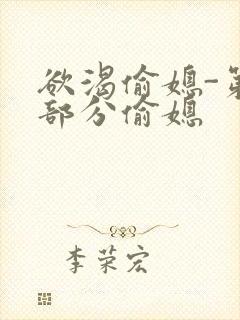 欲渴偷媳-第
部分偷媳
李荣宏